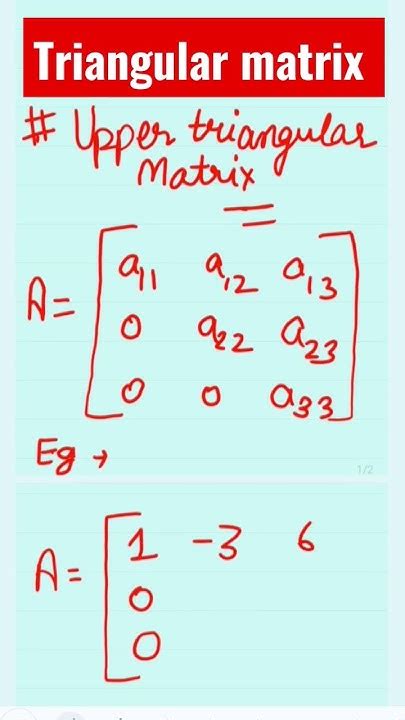 Triangular matrix
# Upper triangular
Matrix
A = [ a11 a12 a13
0 a22 a23
0 0 a33 ]
Eg →
1/2
A = [ 1 -3 6
0
0